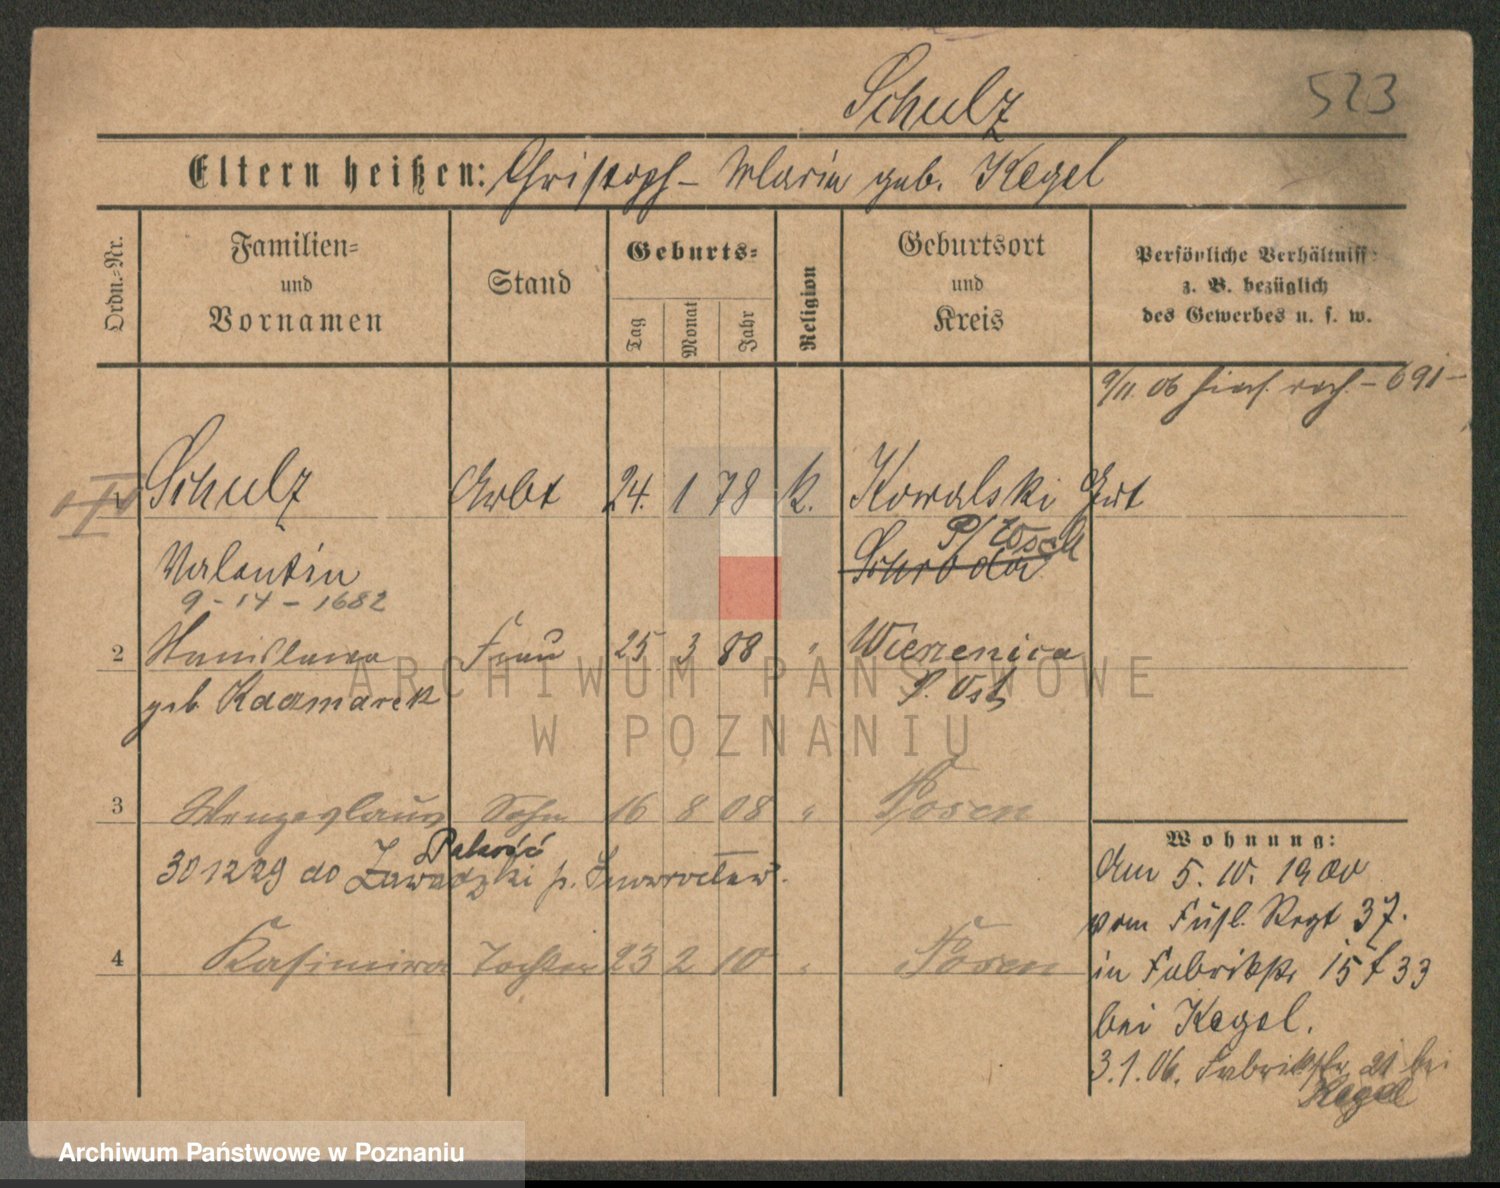 Schulz
523
Eltern heißen: Christoph - Maria geb. Kegel
Ordn.-Nr.
Familien- und Vornamen
Stand
Geburts-
Tag
Monat
Jahr
Religion
Geburtsort und Kreis
Persönliche Verhältniss
z. B. bezüglich
des Gewerbes u. s. w.
9/11. 06 - 691 -
Schulz Arbt 24. 1 78 k. Kowalski Gut
P/
Valentin Schroda
9 - 14 - 1682
2 Stanislawa Frau 25 3 88 " Wierzenica
geb P. Ost
3 Sohn 16 8 08 " Posen
Pakość
30 12 29 do Zawadzki p. Inowrocław.
4 Kasimira Tochter 23 2 10 " Posen
Wohnung:
Am 5. 10. 1900
vom Füsl. Regt 37.
in Fabrikstr 15 f 33
bei Kegel.
3.1.06. Fabrikstr 21 bei
Kegel
ARCHIWUM PAŃSTWOWE
W POZNANIU
Archiwum Państwowe w Poznaniu